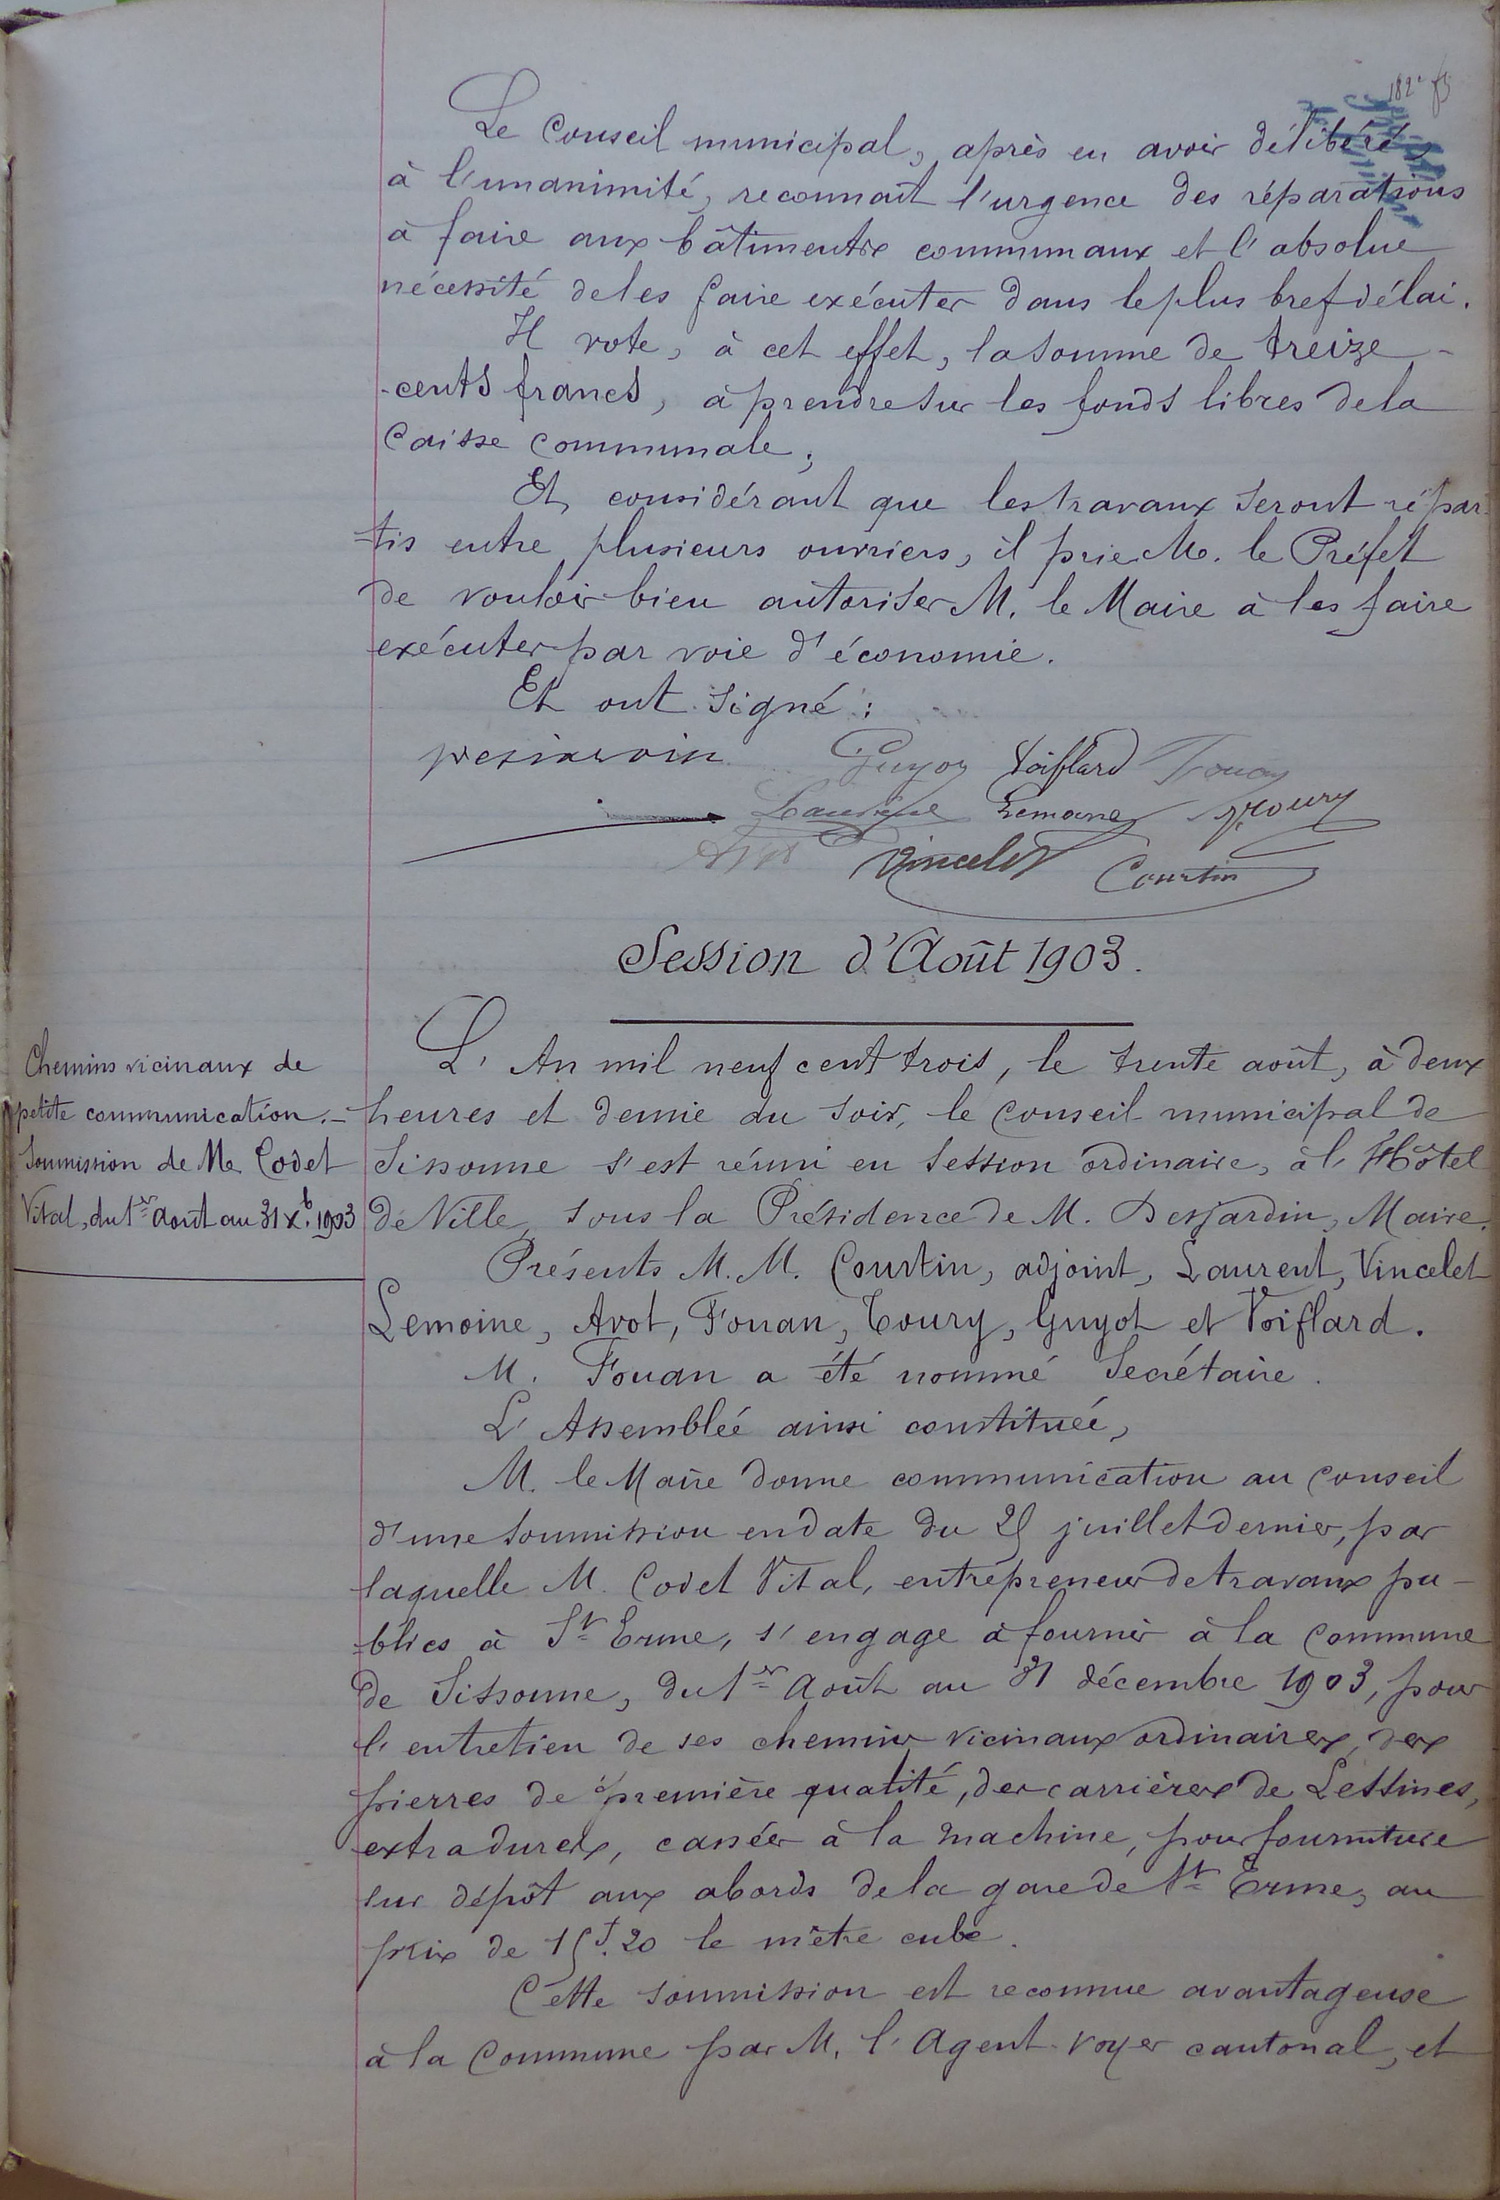 182e
Le Conseil municipal, après en avoir délibéré,
à l'unanimité, reconnaît l'urgence des réparations
à faire aux bâtiments communaux et l'absolue
nécessité de les faire exécuter dans le plus bref délai.
Il vote, à cet effet, la somme de treize -
-cents francs, à prendre sur les fonds libres de la
Caisse communale;
Et, considérant que les travaux seront répar-
-tis entre plusieurs ouvriers, il prie M. le Préfet
de vouloir bien autoriser M. le Maire à les faire
exécuter par voie d'économie.
Et ont signé :
Guyot Voiflard Fouan
Laurent Lemoine Toury
Avot Vincelet Courtin
Session d'Août 1903.
Chemins vicinaux de
petite communication. -
Soumission de Mr Codet
Vital, du 1er Août au 31 Xb. 1903
L'An mil neuf cent trois, le trente août, à deux
heures et demie du soir, le Conseil municipal de
Sissonne s'est réuni en session ordinaire, à l'Hôtel
de Ville, sous la Présidence de M. Desjardin, Maire.
Présents M. M. Courtin, adjoint, Laurent, Vincelet
Lemoine, Avot, Fouan, Toury, Guyot et Voiflard.
M. Fouan a été nommé Secrétaire.
L'Assemblée ainsi constituée,
M. le Maire donne communication au Conseil
d'une soumission en date du 25 juillet dernier, par
laquelle M. Codet Vital, entrepreneur de travaux pu-
-blics à St Erme, s'engage à fournir à la Commune
de Sissonne, du 1er Août au 31 décembre 1903, pour
l'entretien de ses chemins vicinaux ordinaires, des
pierres de première qualité, des carrières de Lessines,
extra dures, cassées à la machine, pour fourniture
sur dépôt aux abords de la gare de St Erme, au
prix de 15f.20 le mètre cube.
Cette soumission est reconnue avantageuse
à la Commune par M. l'Agent-voyer cantonal, et